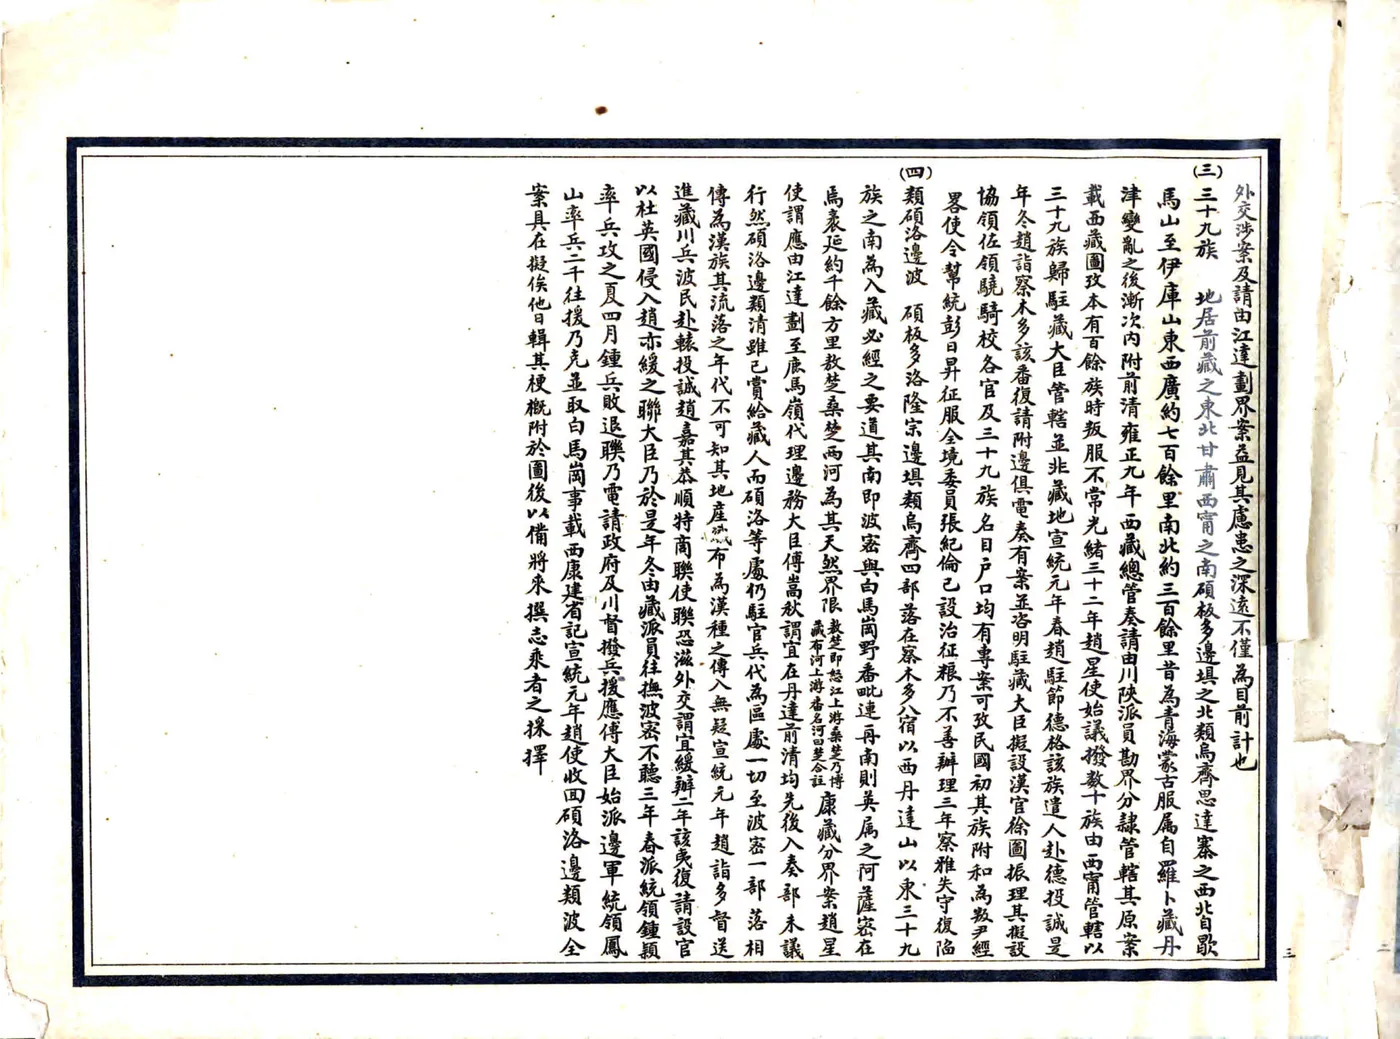 外交涉案及請由江達劃界案益見其慮患之深遠不僅為目前計也
(三)三十九族　地居前藏之東北甘肅西甯之南碩板多邊垻之北類烏齊思達寨之西北自歇
馬山至伊庫山東西廣約七百餘里南北約三百餘里昔為青海蒙古服屬自羅卜藏丹
津變亂之後漸次內附前清雍正九年西藏總管奏請由川陝派員勘界分隸管轄其原案
載西藏圖攷本有百餘族時叛服不常光緒三十二年趙星使始議撥數十族由西甯管轄以
三十九族歸駐藏大臣管轄並非藏地宣統元年春趙駐節德格該族遣人赴德投誠是
年冬趙詣察木多該番復請附邊俱電奏有案並咨明駐藏大臣擬設漢官徐圖振理其擬設
協領佐領驍騎校各官及三十九族名目戶口均有專案可攷民國初其族附和為叛尹經
畧使令幫統彭日昇征服全境委員張紀倫已設治征粮乃不善辦理三年察雅失守復陷
(四)類碩洛邊波　碩板多洛隆宗邊垻類烏齊四部落在察木多八宿以西丹達山以東三十九
族之南為入藏必經之要道其南即波密與白馬崗野番毗連再南則英屬之阿薩密在
焉袤延約千餘方里敖楚桑楚兩河為其天然界限敖楚即怒江上游桑楚乃博
藏布河上游番名河曰楚合註康藏分界案趙星
使謂應由江達劃至鹿馬嶺代理邊務大臣傅嵩秋謂宜在丹達前清均先後入奏部未議
行然碩洛邊類清雖已賞給藏人而碩洛等處仍駐官兵代為區處一切至波密一部落相
傳為漢族其流落之年代不可知其地產藏布為漢種之傳入無疑宣統元年趙詣多督送
進藏川兵波民赴轅投誠趙嘉其恭順特商聯使聯恐滋外交謂宜緩辦二年該夷復請設官
以杜英國侵入趙亦緩之聯大臣乃於是年冬由藏派員往撫波密不聽三年春派統領鍾穎
率兵攻之夏四月鍾兵敗退聯乃電請政府及川督撥兵援應傅大臣始派邊軍統領鳳
山率兵二千往援乃克並取白馬崗事載西康建省記宣統元年趙使收回碩洛邊類波全
案具在擬俟他日輯其梗概附於圖後以備將來撰志乘者之採擇
三